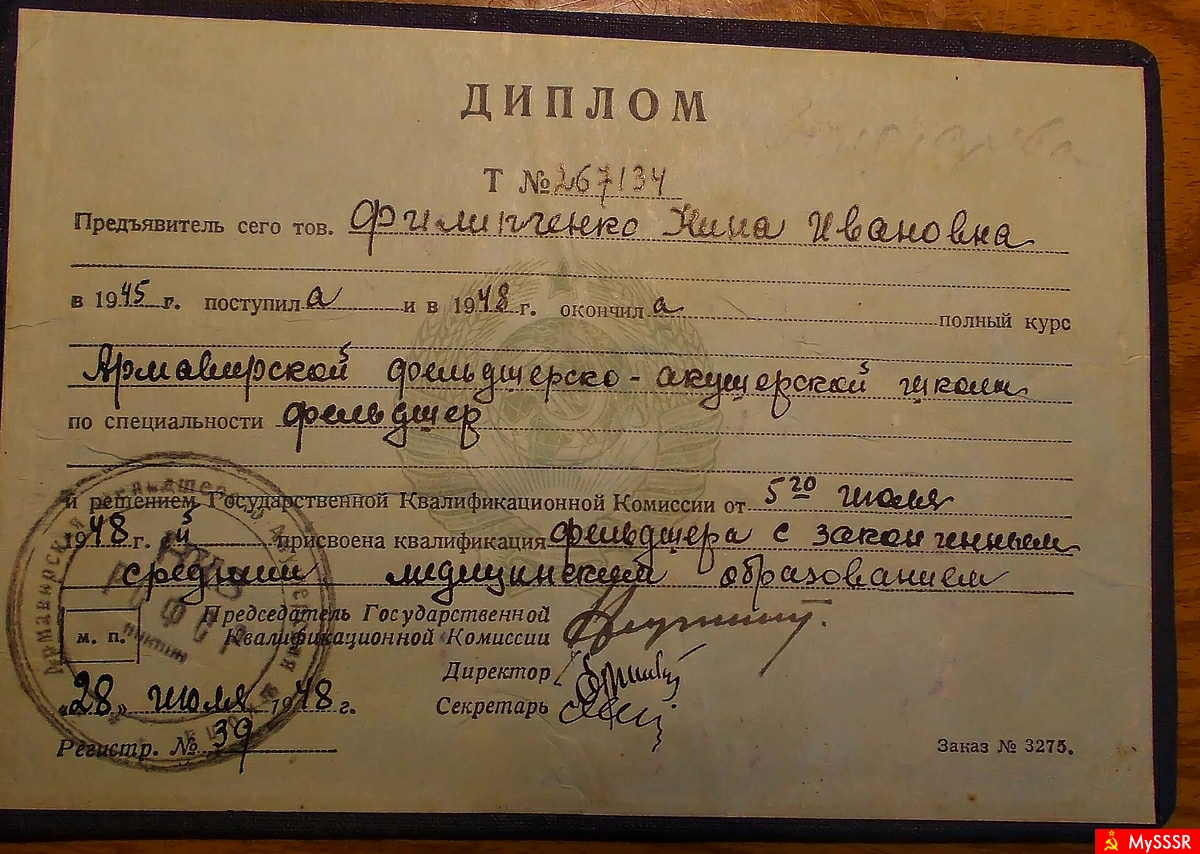 ДИПЛОМ
Т № 267134
Предъявитель сего тов. Филипченко Нина Ивановна
в 1945 г. поступила и в 1948 г. окончила полный курс
Армавирской фельдшерско-акушерской школы
по специальности фельдшер
и решением Государственной Квалификационной Комиссии от 5го июля
1948 г. ей присвоена квалификация фельдшера с законченным
средним медицинским образованием
Председатель Государственной
Квалификационной Комиссии
м. п.
Директор
Секретарь
«28» июля 1948 г.
Регистр. № 39
Заказ № 3275.
MySSSR